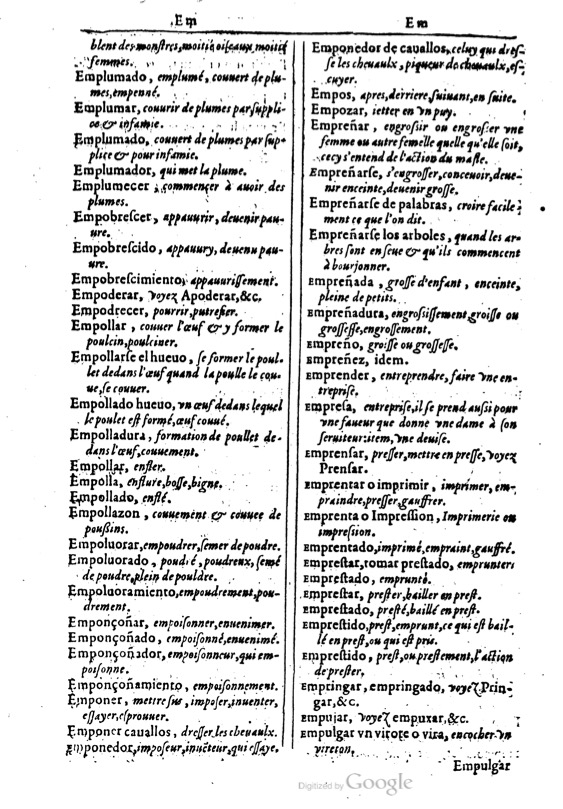 Em
blent des monstres, moitié oiseaux, moitié
femmes.
Emplumado, emplumé, couuert de plu-
mes, empenné.
Emplumar, couurir de plumes par suppli-
ce & infamie.
Emplumado, couuert de plumes par sup-
plice & pour infamie.
Emplumador, qui met la plume.
Emplumecer, commencer à auoir des
plumes.
Empobreſcer, appauurir, deuenir pau-
ure.
Empobreſcido, appauury, deuenu pau-
ure.
Empobreſcimiento, appauuriſſement.
Empoderar, voyez Apoderar, &c.
Empodrecer, pourrir, putrefier.
Empollar, couuer l'œuf & y former le
poulcin, poulciner.
Empollarſe el hueuo, ſe former le poul-
let dedans l'œuf quand la poulle le cou-
ue, ſe couuer.
Empollado hueuo, vn œuf dedans lequel
le poulet eſt formé, œuf couué.
Empolladura, formation de poullet de-
dans l'œuf, couuement.
Empollar, enfler.
Empolla, enflure, boſſe, bigne.
Empollado, enflé.
Empollazon, couuement & couuee de
pouſſins.
Empoluorar, empoudrer, ſemer de poudre.
Empoluorado, poudré, poudreux, ſemé
de poudre, plein de pouldre.
Empoluoramiento, empoudrement, pou-
drement.
Emponçoñar, empoiſonner, enuenimer.
Emponçoñado, empoiſonné, enuenimé.
Emponçoñador, empoiſonneur, qui em-
poiſonne.
Emponçoñamiento, empoiſonnement.
Emponer, mettre ſus, impoſer, inuenter,
eſſayer, eſprouuer.
Emponer cauallos, dreſſer les cheuaulx.
Emponedor, impoſeur, inuēteur, qui eſſaye.
Em
Emponedor de cauallos, celuy qui dreſ-
ſe les cheuaulx, piqueur de cheuaulx, eſ-
cuyer.
Empos, apres, derriere, ſuiuant, en ſuite.
Empozar, ietter en vn puy.
Empreñar, engroſſir ou engroſſer vne
femme ou autre femelle quelle qu'elle ſoit,
cecy s'entend de l'action du maſle.
Empreñarſe, s'engroſſer, conceuoir, deue-
nir enceinte, deuenir groſſe.
Empreñarſe de palabras, croire facile-
ment ce que l'on dit.
Empreñarſe los arboles, quand les ar-
bres ſont en ſeue & qu'ils commencent
à bourjonner.
Empreñada, groſſe d'enfant, enceinte,
pleine de petits.
Empreñadura, engroſſiſſement, groiſſe ou
groſſeſſe, engroſſement.
Empreño, groiſſe ou groſſeſſe.
Empreñez, idem.
Emprender, entreprendre, faire vne en-
trepriſe.
Empreſa, entrepriſe, il ſe prend auſſi pour
vne faueur que donne vne dame à ſon
ſeruiteur: item, vne deuiſe.
Emprenſar, preſſer, mettre en preſſe, voyez
Prenſar.
Emprentar o imprimir, imprimer, em-
praindre, preſſer, gauffrer.
Emprenta o Impreſsion, Imprimerie ou
impreſſion.
Emprentado, imprimé, empraint, gauffré.
Empreſtar, tomar preſtado, emprunter.
Empreſtado, emprunté.
Empreſtar, preſter, bailler en preſt.
Empreſtado, preſté, baillé en preſt.
Empreſtido, preſt, emprunt, ce qui eſt bail-
lé en preſt, ou qui eſt pris.
Empreſtido, preſt, ou preſtement, l'action
de preſter.
Empringar, empringado, voyez Prin-
gar, &c.
Empujar, voyez empuxar, &c.
Empulgar vn virote o vira, encocher vn
vireton.
Empulgar
Digitized by Google